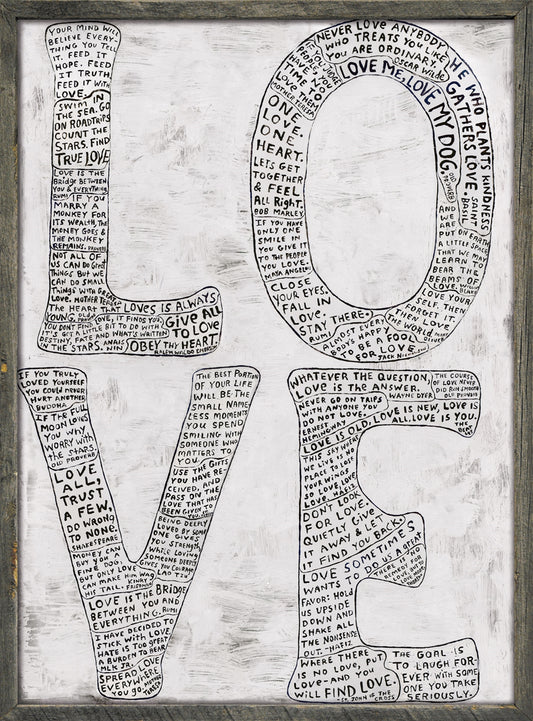 YOUR MIND WILL
BELIEVE EVERY-
THING YOU TELL
IT. FEED IT
HOPE. FEED
IT TRUTH.
FEED IT WITH
LOVE.
SWIM IN
THE SEA. GO
ON ROADTRIPS
COUNT THE
STARS. FIND
TRUE LOVE
LOVE IS THE
BRIDGE BETWEEN
YOU & EVERYTHING.
RUMI
IF YOU
MARRY A
MONKEY FOR
ITS WEALTH, THE
MONEY GOES &
THE MONKEY
REMAINS. PROVERB
NOT ALL OF
US CAN DO GREAT
THINGS BUT WE
CAN DO SMALL
THINGS WITH GREAT
LOVE. MOTHER TERESA
THE HEART THAT LOVES IS ALWAYS
YOUNG.
YOU DON'T FIND LOVE, IT FINDS YOU.
IT'S GOT A LITTLE BIT TO DO WITH
DESTINY, FATE AND WHAT'S WRITTEN
IN THE STARS. ANAIS
NIN
GIVE ALL
TO LOVE
OBEY THY HEART.
RALPH WALDO EMERSON
NEVER LOVE ANYBODY
WHO TREATS YOU LIKE
YOU ARE ORDINARY.
OSCAR WILDE
HE WHO PLANTS KINDNESS
GATHERS LOVE. SAINT
BASIL
LOVE ME, LOVE MY DOG. OLD
PROVERB
IF YOU JUDGE
PEOPLE, YOU
HAVE NO
TIME TO
LOVE THEM
MOTHER TERESA
ONE
LOVE.
ONE
HEART.
LETS GET
TOGETHER
& FEEL
ALL RIGHT.
BOB MARLEY
IF YOU HAVE
ONLY ONE
SMILE IN
YOU GIVE IT
TO THE PEOPLE
YOU LOVE.
MAYA ANGELOU
CLOSE
YOUR EYES.
FALL IN
LOVE,
STAY THERE.
RUMI
ALMOST EVERY
BODY'S HAPPY
TO BE A FOOL
FOR LOVE.
JACK NICHOLSON
AND
WE ARE
PUT ON EARTH
A LITTLE SPACE
THAT WE MAY
LEARN TO
BEAR THE
BEAMS OF
LOVE. WILLIAM
BLAKE
LOVE YOUR
SELF. THEN
FORGET IT.
THEN LOVE
THE WORLD. MARY
OLIVER
IF YOU TRULY
LOVED YOURSELF
YOU COULD NEVER
HURT ANOTHER
BUDDHA
IF THE FULL
MOON LOVES
YOU WHY
WORRY WITH
THE STARS.
OLD PROVERB
LOVE
ALL,
TRUST
A FEW,
DO WRONG
TO NONE.
SHAKESPEARE
MONEY CAN
BUY YOU A
FINE DOG,
BUT ONLY LOVE
CAN MAKE HIM WAG
HIS TAIL. KINKY
FRIEDMAN
LOVE IS THE BRIDGE
BETWEEN YOU AND
EVERYTHING. RUMI
I HAVE DECIDED TO
STICK WITH LOVE.
HATE IS TOO GREAT
A BURDEN TO BEAR
MLK JR.
SPREAD LOVE
EVERYWHERE
YOU GO. MOTHER
TERESA
THE BEST PORTION
OF YOUR LIFE
WILL BE THE
SMALL NAME-
LESS MOMENTS
YOU SPEND
SMILING WITH
SOMEONE WHO
MATTERS TO
YOU.
USE THE GIFTS
YOU HAVE RE-
CEIVED, AND
PASS ON THE
LOVE THAT HAS
BEEN GIVEN TO
YOU.
BEING DEEPLY
LOVED BY SOMEONE
GIVES YOU
STRENGTH,
WHILE LOVING
SOMEONE DEEPLY
GIVES YOU COURAGE
LAO TZU
WHATEVER THE QUESTION,
LOVE IS THE ANSWER.
WAYNE DYER
THE COURSE
OF LOVE NEVER
DID RUN SMOOTH
OLD PROVERB
NEVER GO ON TRIPS
WITH ANYONE YOU
DO NOT LOVE.
ERNEST
HEMINGWAY
LOVE IS OLD, LOVE IS NEW, LOVE IS
ALL, LOVE IS YOU.
THE
BEATLES
THIS SKY WHERE
WE LIVE IS NO
PLACE TO LOSE
YOUR WINGS
SO LOVE, LOVE
LOVE. HAFIZ
DON'T LOOK
FOR LOVE.
QUIETLY GIVE
IT AWAY & LET
IT FIND YOU BACK.
LOVE SOMETIMES
WANTS TO DO US A GREAT
FAVOR: HOLD
US UPSIDE
DOWN AND
SHAKE ALL
THE NONSENSE
OUT. -HAFIZ
THERE IS NO
REMEDY FOR
LOVE BUT TO
LOVE MORE
WHERE THERE
IS NO LOVE, PUT
LOVE - AND YOU
WILL FIND LOVE.
-ST. JOHN OF THE
CROSS
THE GOAL IS
TO LAUGH FOR-
EVER WITH SOME
ONE YOU TAKE
SERIOUSLY.